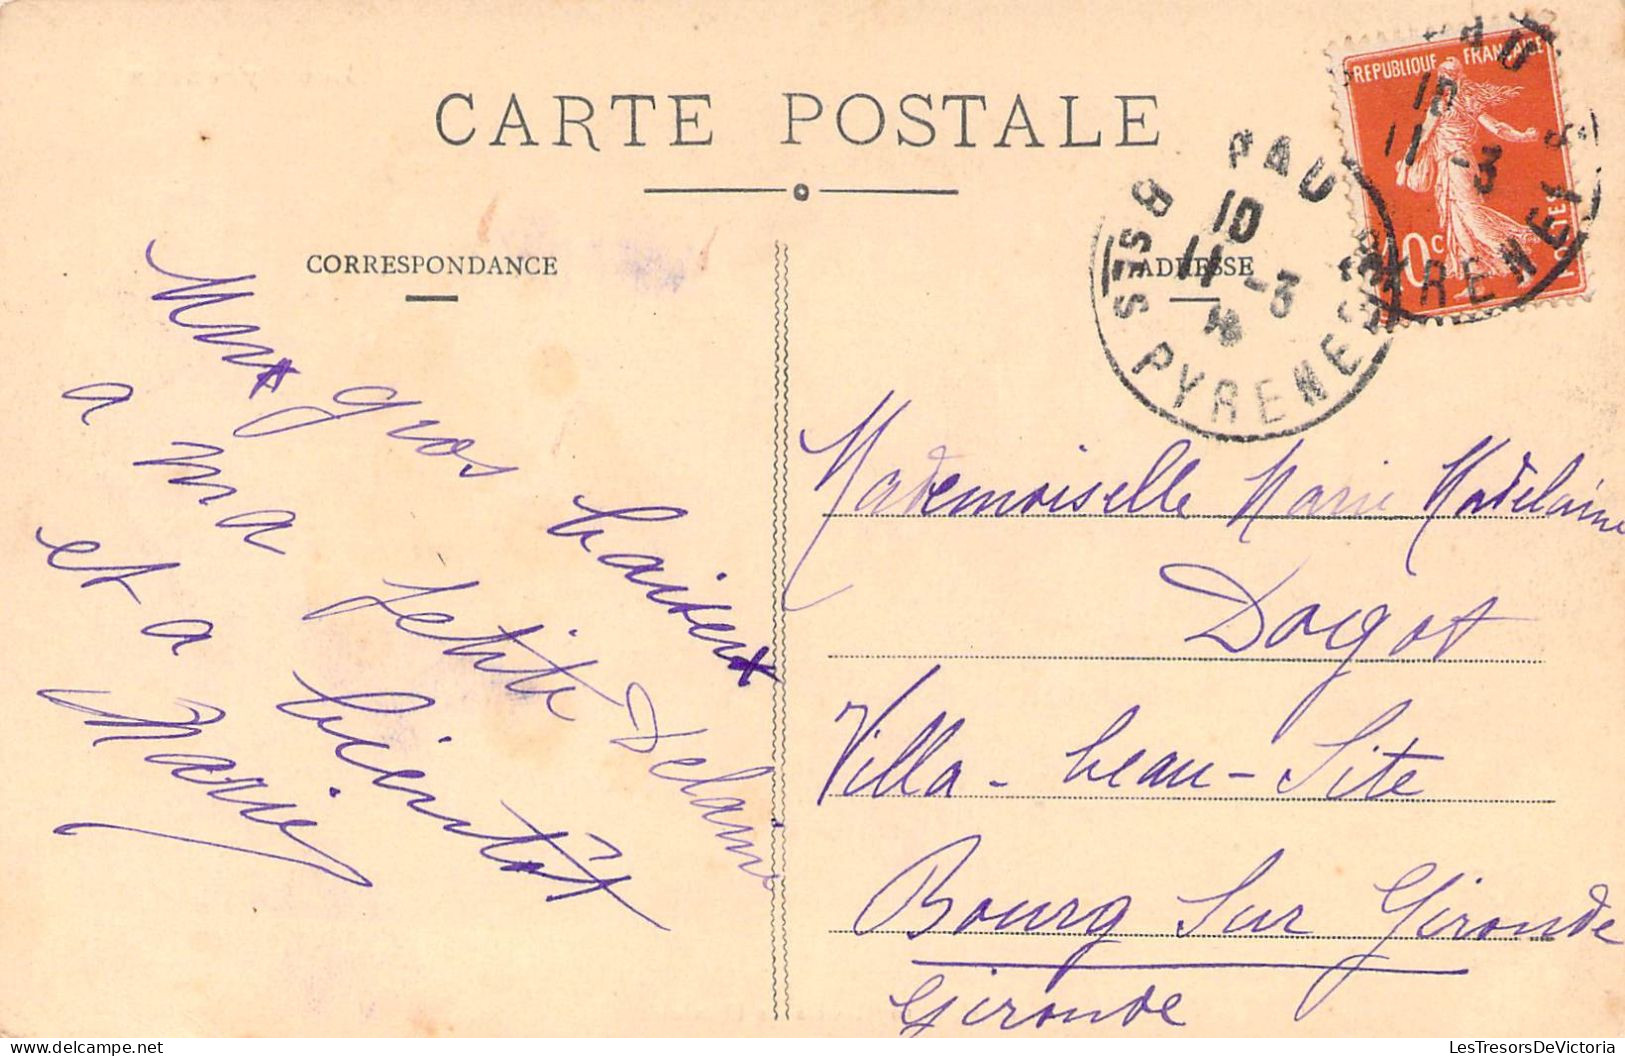 CARTE POSTALE
CORRESPONDANCE
ADRESSE
REPUBLIQUE FRANÇAISE
10c
POSTES
PAU
10
11 -3
PYRENEES
PAU
10
11 -3
BSES PYRENEES
gros baisers
a ma petite
et a bientôt
Marie
Mademoiselle Marie Madelaine
Dogot
Villa - beau - Site
Bourg Sur Gironde
Gironde
LesTresorsDeVictoria